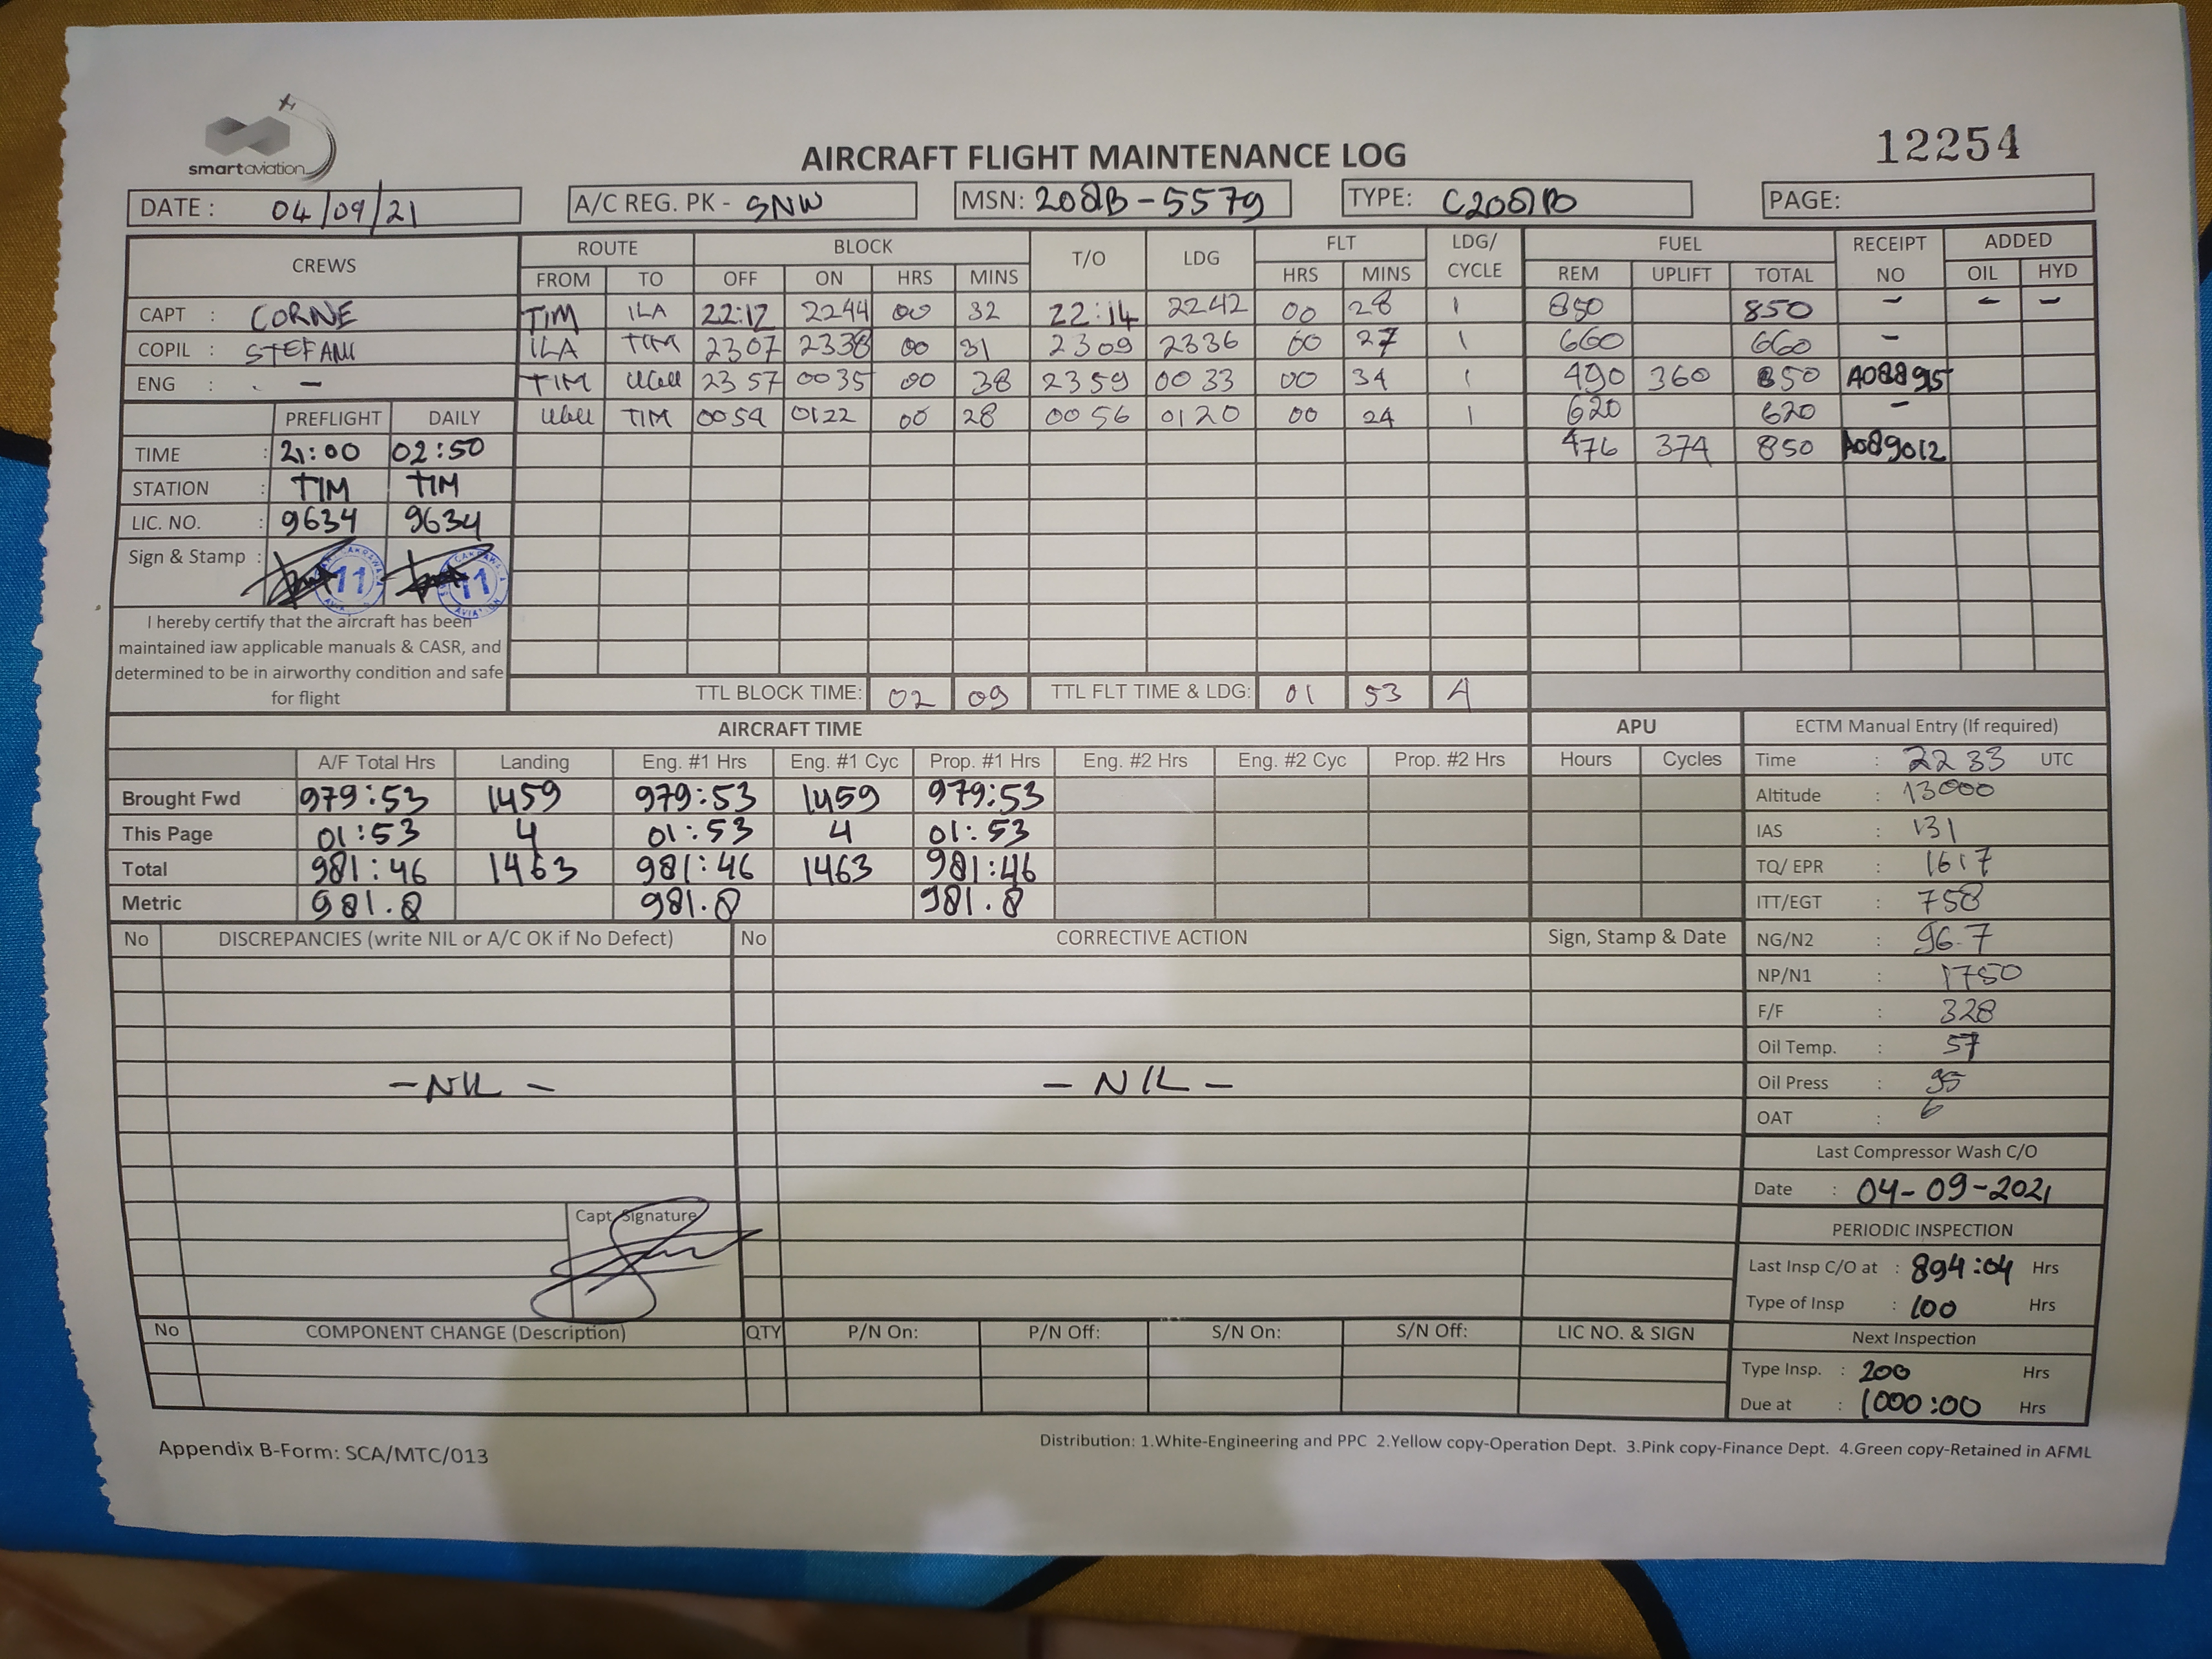 smartaviation
AIRCRAFT FLIGHT MAINTENANCE LOG
12254
DATE : 04/09/21
A/C REG. PK - SNW
MSN: 208B-5579
TYPE: C208B
PAGE:
CREWS ROUTE BLOCK T/O LDG FLT LDG/ CYCLE FUEL RECEIPT NO ADDED
FROM TO OFF ON HRS MINS HRS MINS REM UPLIFT TOTAL OIL HYD
CAPT : CORNE TIM ILA 22:12 2244 00 32 22:14 2242 00 28 1 850 850 - - -
COPIL : STEFANI ILA TIM 2307 2338 00 31 2309 2336 00 27 1 660 660 -
ENG : - TIM 2357 0035 00 38 2359 0033 00 34 1 490 360 850 A088915
PREFLIGHT DAILY TIM 0054 0122 00 28 0056 0120 00 24 1 620 620 -
TIME : 21:00 02:50 476 374 850 A089012
STATION : TIM TIM
LIC. NO. : 9634 9634
Sign & Stamp : 11 11
I hereby certify that the aircraft has been
maintained iaw applicable manuals & CASR, and
determined to be in airworthy condition and safe
for flight
TTL BLOCK TIME: 02 09 TTL FLT TIME & LDG: 01 53 4
AIRCRAFT TIME APU
A/F Total Hrs Landing Eng. #1 Hrs Eng. #1 Cyc Prop. #1 Hrs Eng. #2 Hrs Eng. #2 Cyc Prop. #2 Hrs Hours Cycles
Brought Fwd 979:53 1459 979:53 1459 979:53
This Page 01:53 4 01:53 4 01:53
Total 981:46 1463 981:46 1463 981:46
Metric 981.8 981.8 981.8
ECTM Manual Entry (If required)
Time : 2233 UTC
Altitude : 13000
IAS : 131
TQ/ EPR : 1617
ITT/EGT : 758
NG/N2 : 96.7
NP/N1 : 1750
F/F : 328
Oil Temp. : 57
Oil Press : 95
OAT : 6
Last Compressor Wash C/O
Date : 04-09-2021
PERIODIC INSPECTION
Last Insp C/O at : 894:04 Hrs
Type of Insp : 100 Hrs
Next Inspection
Type Insp. : 200 Hrs
Due at : 1000:00 Hrs
No DISCREPANCIES (write NIL or A/C OK if No Defect) No CORRECTIVE ACTION Sign, Stamp & Date
-NIL - - NIL -
Capt. Signature
No COMPONENT CHANGE (Description) QTY P/N On: P/N Off: S/N On: S/N Off: LIC NO. & SIGN
Appendix B-Form: SCA/MTC/013
Distribution: 1.White-Engineering and PPC 2.Yellow copy-Operation Dept. 3.Pink copy-Finance Dept. 4.Green copy-Retained in AFML